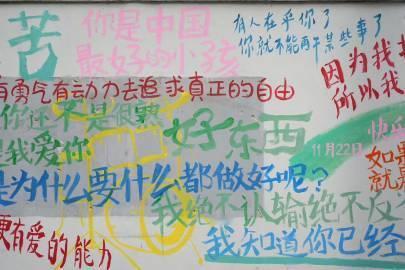 苦
你是中国
最好的小孩
有人在乎你了
你就不能再干某些事了
因为我
所以我
有勇气有动力去追求真正的自由
你还不是很
是我爱你
好东西
11月22日
快
如果
就是
是为什么要什么都做好呢？
我绝不认输绝不反
更有爱的能力
我知道你已经